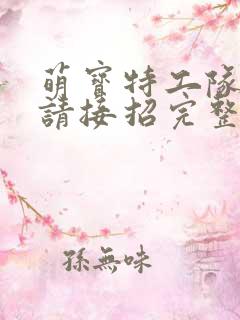 萌寶特工隊
請接招完整
孫無味